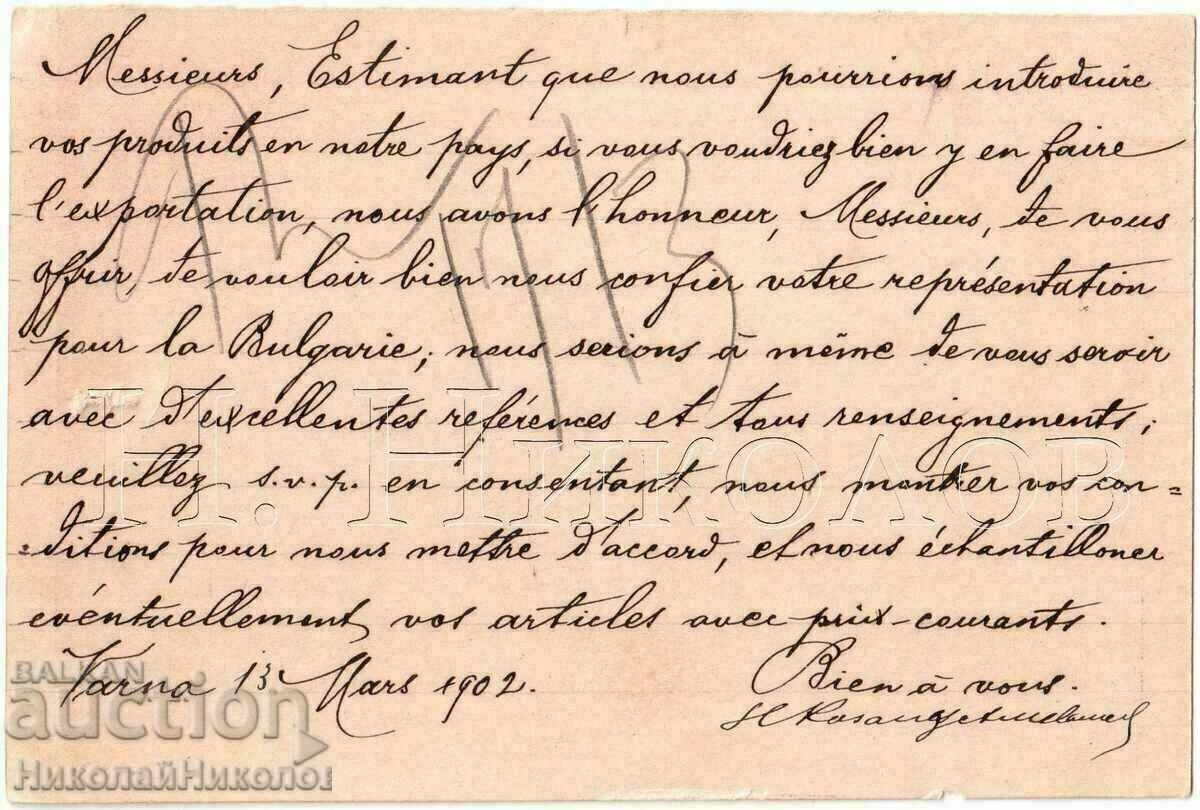 Messieurs, Estimant que nous pourrions introduire
vos produits en notre pays, si vous voudriez bien y en faire
l'exportation, nous avons l'honneur, Messieurs, de vous
offrir, de vouloir bien nous confier votre représentation
pour la Bulgarie; nous serions à même de vous servir
avec d'excellentes références et tous renseignements;
veuillez s.v.p. en consentant, nous montrer vos con=
=ditions pour nous mettre d'accord, et nous échantilloner
eventuellement vos articles avec prix-courants.
Varna 13 Mars 1902.
Bien à vous.
Н. Николов
BALKAN
auction
НиколайНиколов